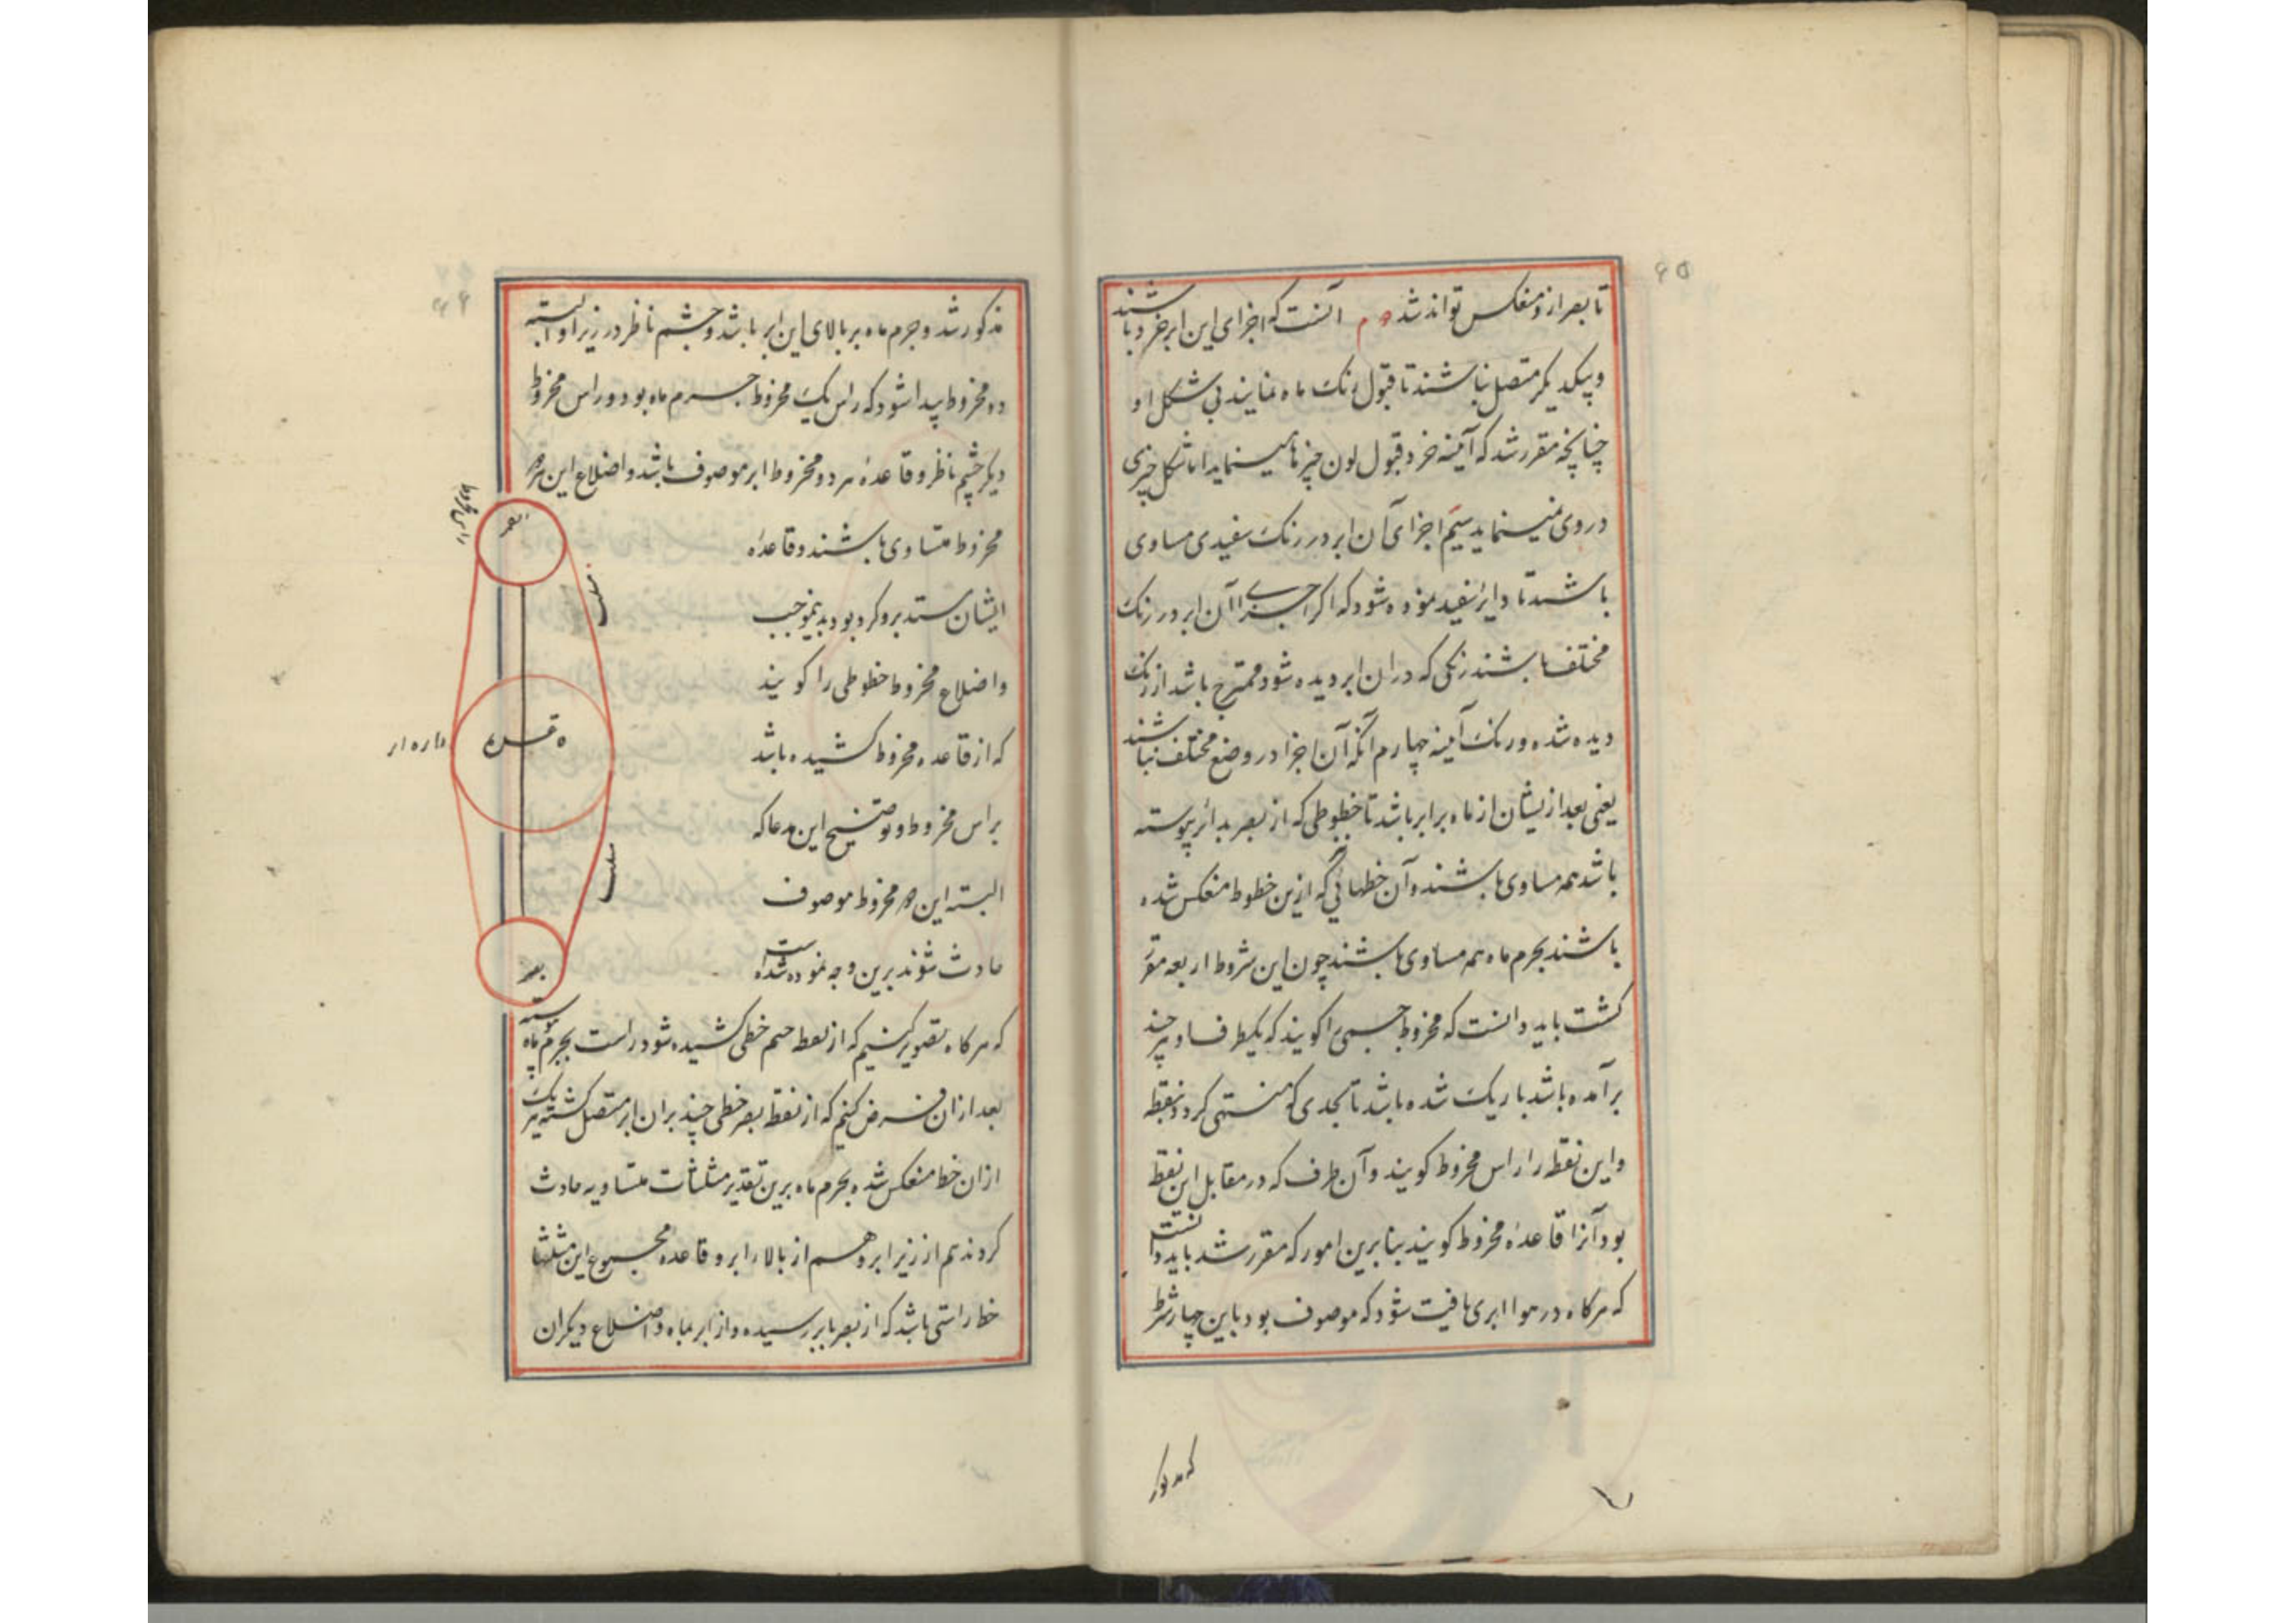 تا بصر ازو منعکس تواند شد دوم آنست که اجزای این ابر خرد باشند
و بیکدیکر متصل نباشند تا قبول رنک ماه نمایند بی شکل او
چنانچه مقرر شد که آینه خرد قبول لون چیزها مینماید اما شکل چیزی
در وی نمینماید سیم اجزای آن ابر در رنک سفیدی مساوی
باشند تا دایره سفید نموده شود که اکر اجزای آن ابر در رنک
مختلف باشند رنکی که در ان ابر دیده شود ممتزج باشد از رنک
دیده شده و رنک آینه چهارم آنکه آن اجزا در وضع مختلف نباشند
یعنی بعد ازیشان از ماه برابر باشد تا خطوطی که از بصر بدایره پیوسته
باشد همه مساوی باشند و آن خطهائی که ازین خطوط منعکس شده
باشند بجرم ماه همه مساوی باشند چون این شروط اربعه مقرر
کشت باید دانست که مخروط جسمی را کویند که یکطرف او پر چند
برآمده باشد باریک شده باشد تا بحدی که منتهی کردد بنقطه
و این نقطه را راس مخروط کویند و آن طرف که در مقابل این نقطه
بود آنرا قاعدهٔ مخروط کویند بنابرین امور که مقرر شد باید دانست
که هرکاه در هوا ابری یافت شود که موصوف بود باین چهار شرط
که مذکور
مذکور شد و جرم ماه بر بالای این ابر باشد و چشم ناظر در زیر او البته
دو مخروط پیدا شود که راس یک مخروط جرم ماه بود و راس مخروط
دیکر چشم ناظر و قاعدهٔ هر دو مخروط ابر موصوف باشد و اضلاع این هر دو
مخروط متساوی باشند و قاعدهٔ
ایشان مستدیر و کرد بود بدینموجب
و اضلاع مخروط خطوطی را کویند
که از قاعده مخروط کشیده باشد
براس مخروط و توضیح این مدعا که
البته این دو مخروط موصوف
حادث شوند برین وجه نموده شده است
که هرکاه تصویر کنیم که از نقطه چشم خطی کشیده شود راست بجرم ماه پیوسته
بعد ازان فرض کنیم که از نقطه بصر خطی چند بران ابر متصل کشته هر یک
ازان خط منعکس شده بجرم ماه برین تقدیر مثلثات متساویه حادث
کردند هم از زیر ابر و هم از بالاء ابر و قاعده مجموع این مثلثها
خط راستی باشد که از بصر بابر رسیده و از ابر بماه و اضلاع دیکران
راس مخروط
دایره ابر
بصر